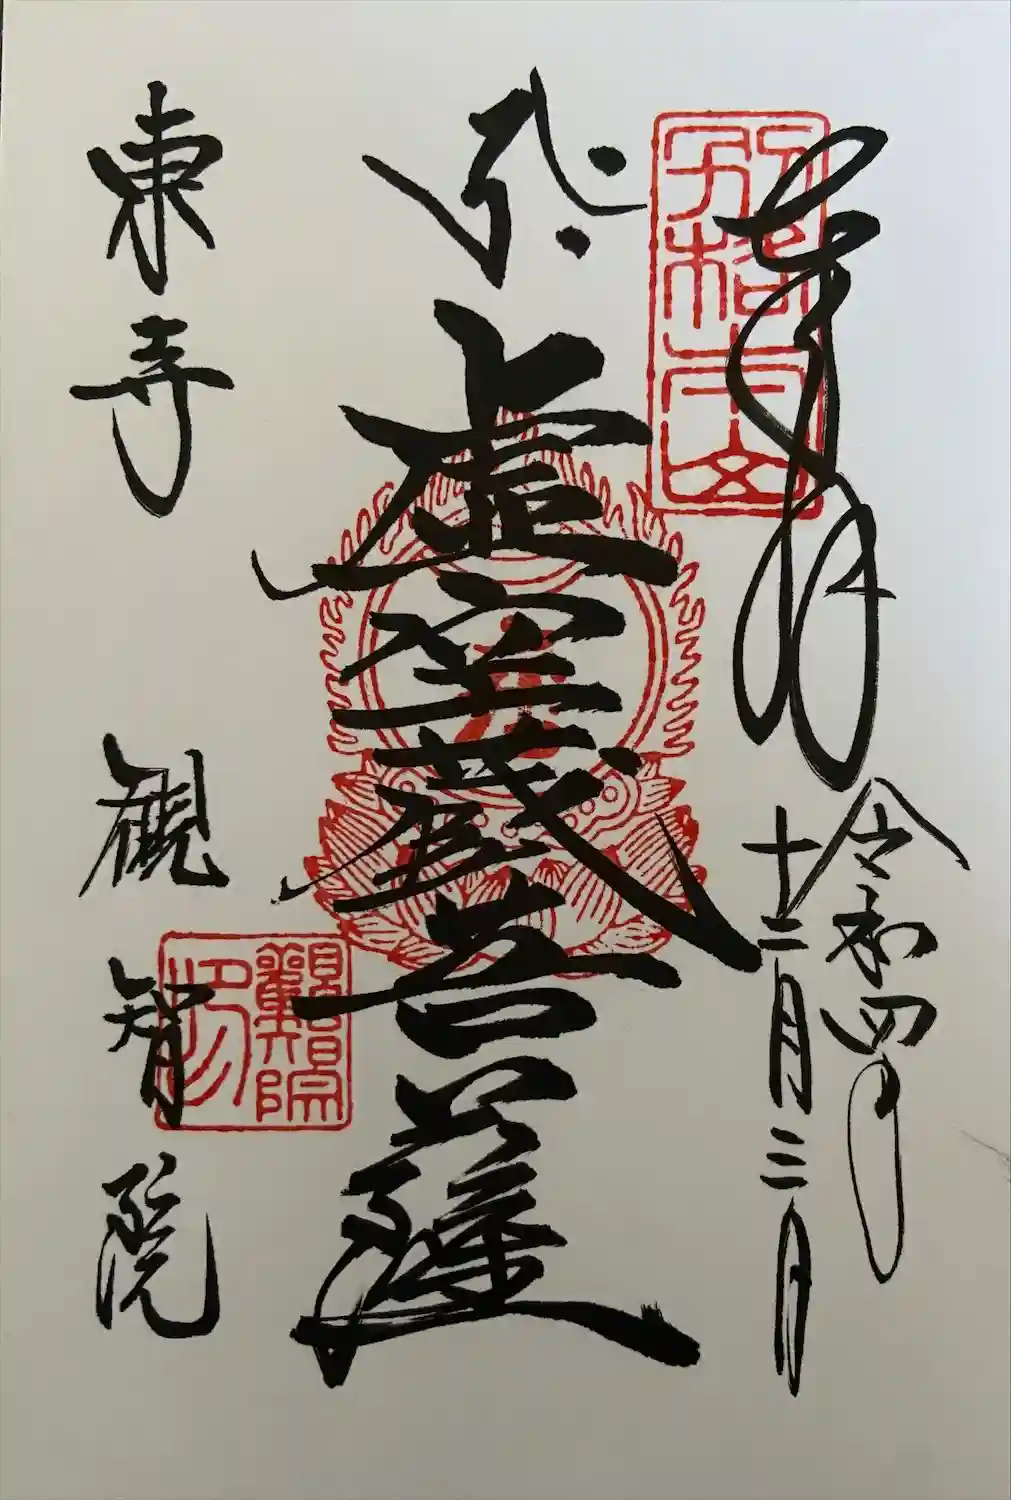 奉拝
令和四年
十二月三日
虚空蔵菩薩
東寺
観智院
別格本山
観智院印